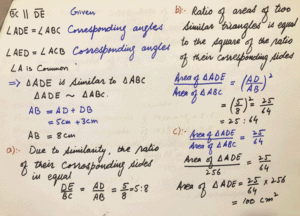 BC || DE Given
∠ADE = ∠ABC Corresponding angles
∠AED = ∠ACB Corresponding angles
∠A is Common
⇒ △ADE is similar to △ABC
△ADE ~ △ABC.
AB = AD + DB
= 5cm + 3cm
AB = 8cm
a):- Due to similarity, the ratio
of their corresponding sides
is equal
DE/BC = AD/AB = 5/8 = 5:8
b):- Ratio of areas of two
similar triangles is equal
to the square of the ratio
of their corresponding sides
Area of △ADE / Area of △ABC = (AD/AB)²
= (5/8)² = 25/64
= 25:64
c):- Area of △ADE / Area of △ABC = 25/64
Area of △ADE / 256 = 25/64
Area of △ADE = 25/64 × 256
= 100 cm²